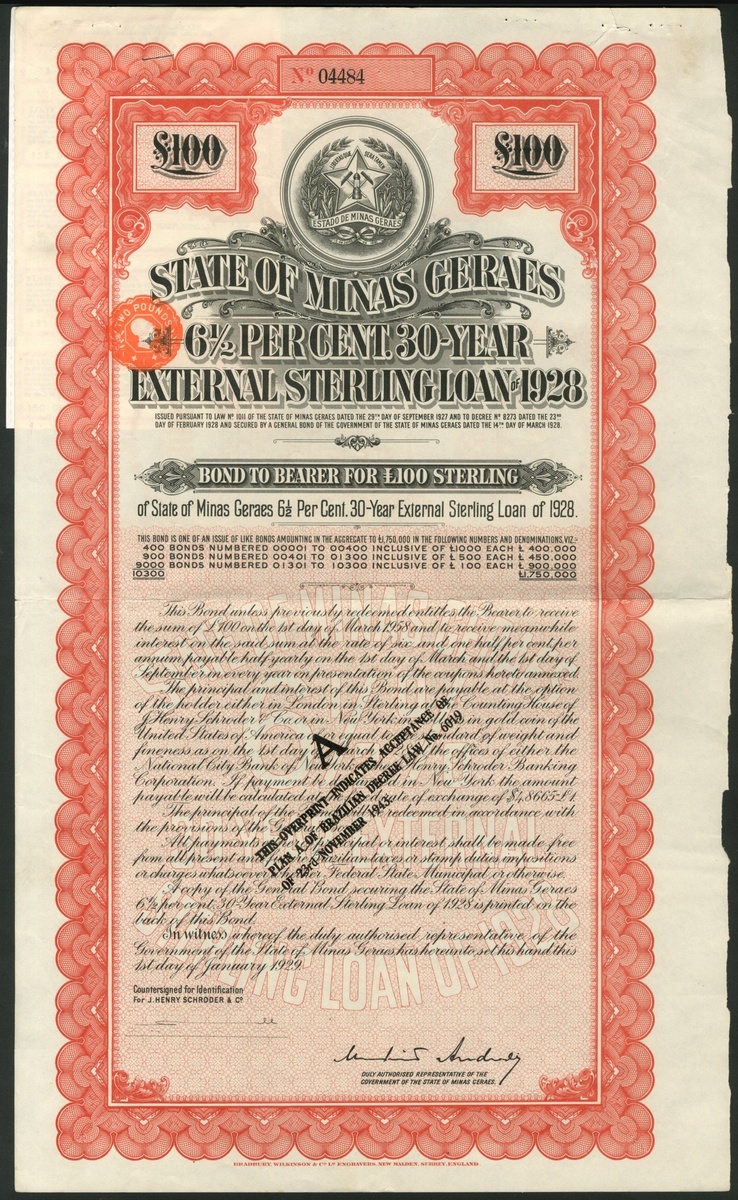 Nº 04484
£100
£100
LIBERTAS QUÆ SERA TAMEN
ESTADO DE MINAS GERAES
STATE OF MINAS GERAES
TWO POUNDS
6½ PER CENT. 30-YEAR
EXTERNAL STERLING LOAN OF 1928
ISSUED PURSUANT TO LAW Nº 1011 OF THE STATE OF MINAS GERAES DATED THE 29TH DAY OF SEPTEMBER 1927 AND TO DECREE Nº 8273 DATED THE 23RD
DAY OF FEBRUARY 1928 AND SECURED BY A GENERAL BOND OF THE GOVERNMENT OF THE STATE OF MINAS GERAES DATED THE 14TH DAY OF MARCH 1928.
BOND TO BEARER FOR £100 STERLING
of State of Minas Geraes 6½ Per Cent. 30-Year External Sterling Loan of 1928.
THIS BOND IS ONE OF AN ISSUE OF LIKE BONDS AMOUNTING IN THE AGGREGATE TO £1,750,000 IN THE FOLLOWING NUMBERS AND DENOMINATIONS, VIZ:-
400 BONDS NUMBERED 00001 TO 00400 INCLUSIVE OF £1000 EACH £ 400.000
900 BONDS NUMBERED 00401 TO 01300 INCLUSIVE OF £ 500 EACH £ 450.000
9000 BONDS NUMBERED 01301 TO 10300 INCLUSIVE OF £ 100 EACH £ 900.000
10300 £1,750.000
This Bond unless previously redeemed entitles the Bearer to receive
the sum of £100 on the 1st day of March 1958 and to receive meanwhile
interest on the said sum at the rate of six and one half per cent. per
annum payable half yearly on the 1st day of March and the 1st day of
September in every year on presentation of the coupons hereto annexed.
The principal and interest of this Bond are payable at the option
of the holder either in London in Sterling at the Counting House of
J. Henry Schroder & Co. or in New York in in gold coin of the
United States of America equal to standard of weight and
fineness as on the 1st day March the offices of either the
National City Bank of York Henry Schroder Banking
Corporation. If payment be in New York the amount
payable will be calculated rate of exchange of $4,8665-£1.
The principal of the will be redeemed in accordance with
the provisions of the
All payments principal or interest shall be made free
from all present Brazilian taxes or stamp duties impositions
or charges whatsoever Federal State Municipal or otherwise.
A copy of the General Bond securing the State of Minas Geraes
6½ per cent. 30-Year External Sterling Loan of 1928 is printed on the
back of this Bond.
In witness whereof the duly authorised representative of the
Government of the State of Minas Geraes has hereunto set his hand this
1st day of January 1929.
A
THIS OVERPRINT INDICATES ACCEPTANCE OF
PLAN A OF BRAZILIAN DECREE LAW No. 6019
OF 23rd NOVEMBER 1943.
Countersigned for Identification
For J. HENRY SCHRODER & Cº
DULY AUTHORISED REPRESENTATIVE OF THE
GOVERNMENT OF THE STATE OF MINAS GERAES.
BRADBURY, WILKINSON & Cº Lº ENGRAVERS, NEW MALDEN. SURREY, ENGLAND